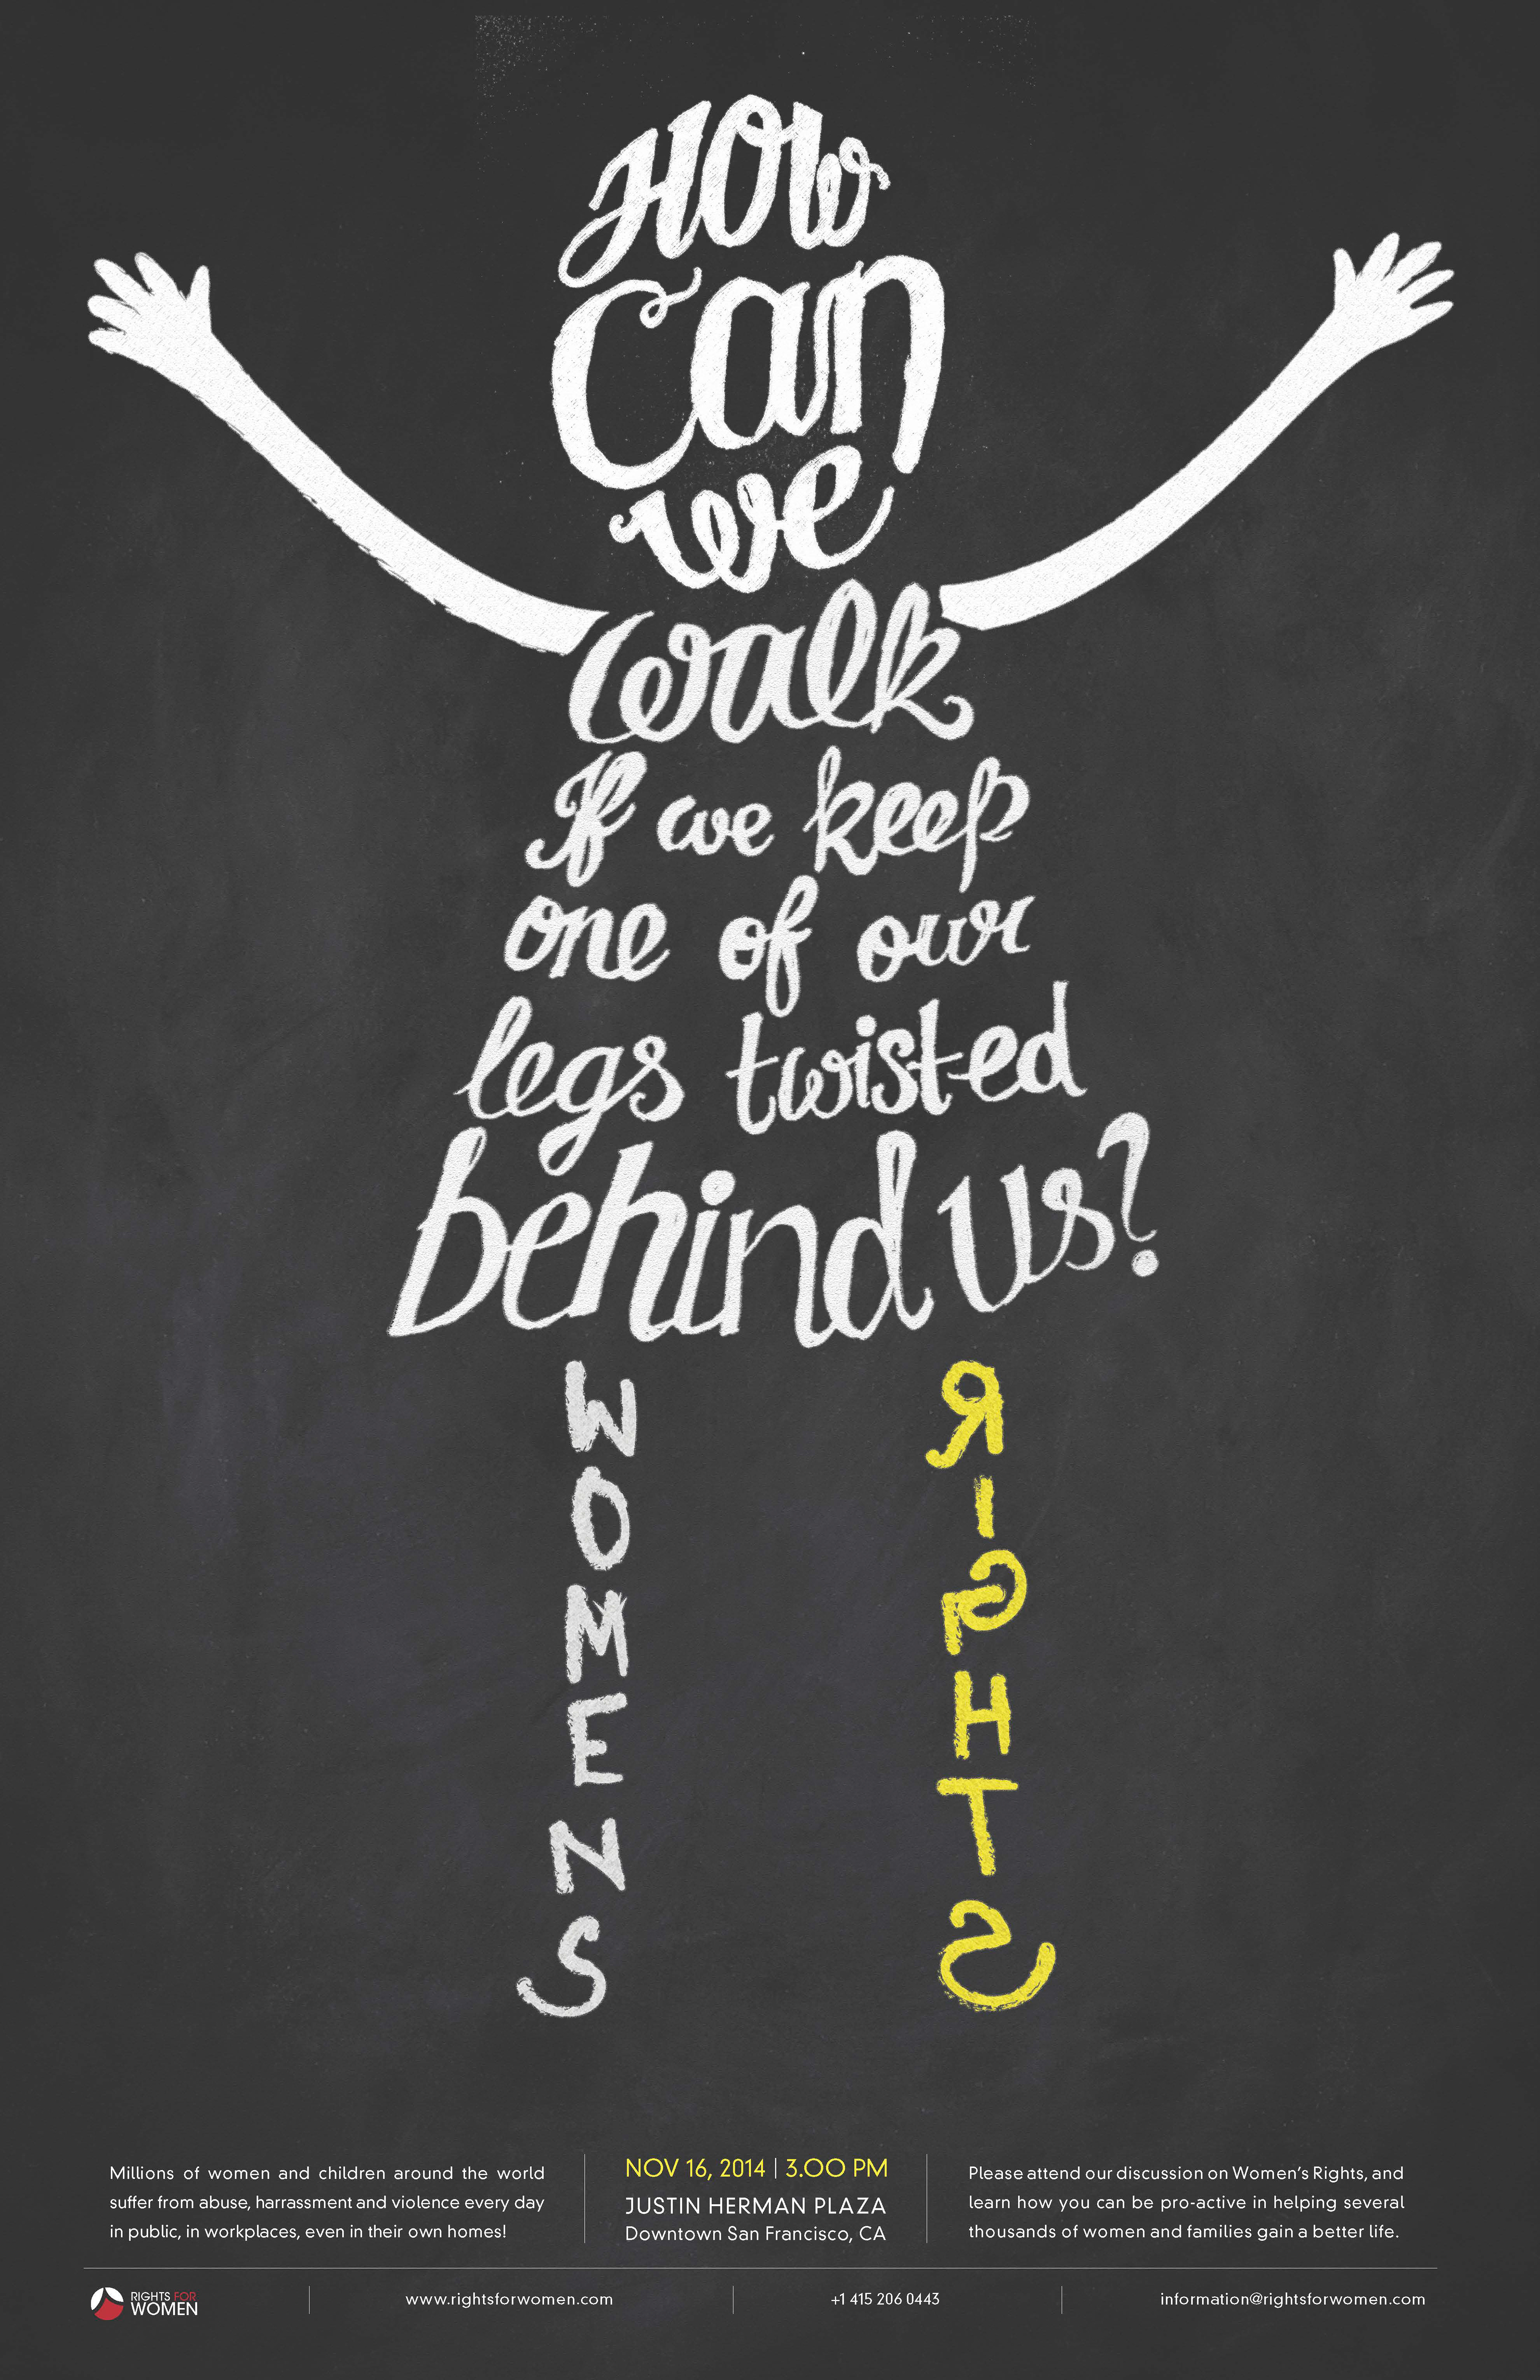 How
Can
we
walk
If we keep
one of our
legs twisted
behind us?
WOMENS
RIGHTS
Millions of women and children around the world
suffer from abuse, harrassment and violence every day
in public, in workplaces, even in their own homes!
NOV 16, 2014 | 3.00 PM
JUSTIN HERMAN PLAZA
Downtown San Francisco, CA
Please attend our discussion on Women's Rights, and
learn how you can be pro-active in helping several
thousands of women and families gain a better life.
RIGHTS FOR
WOMEN
www.rightsforwomen.com
+1 415 206 0443
information@rightsforwomen.com